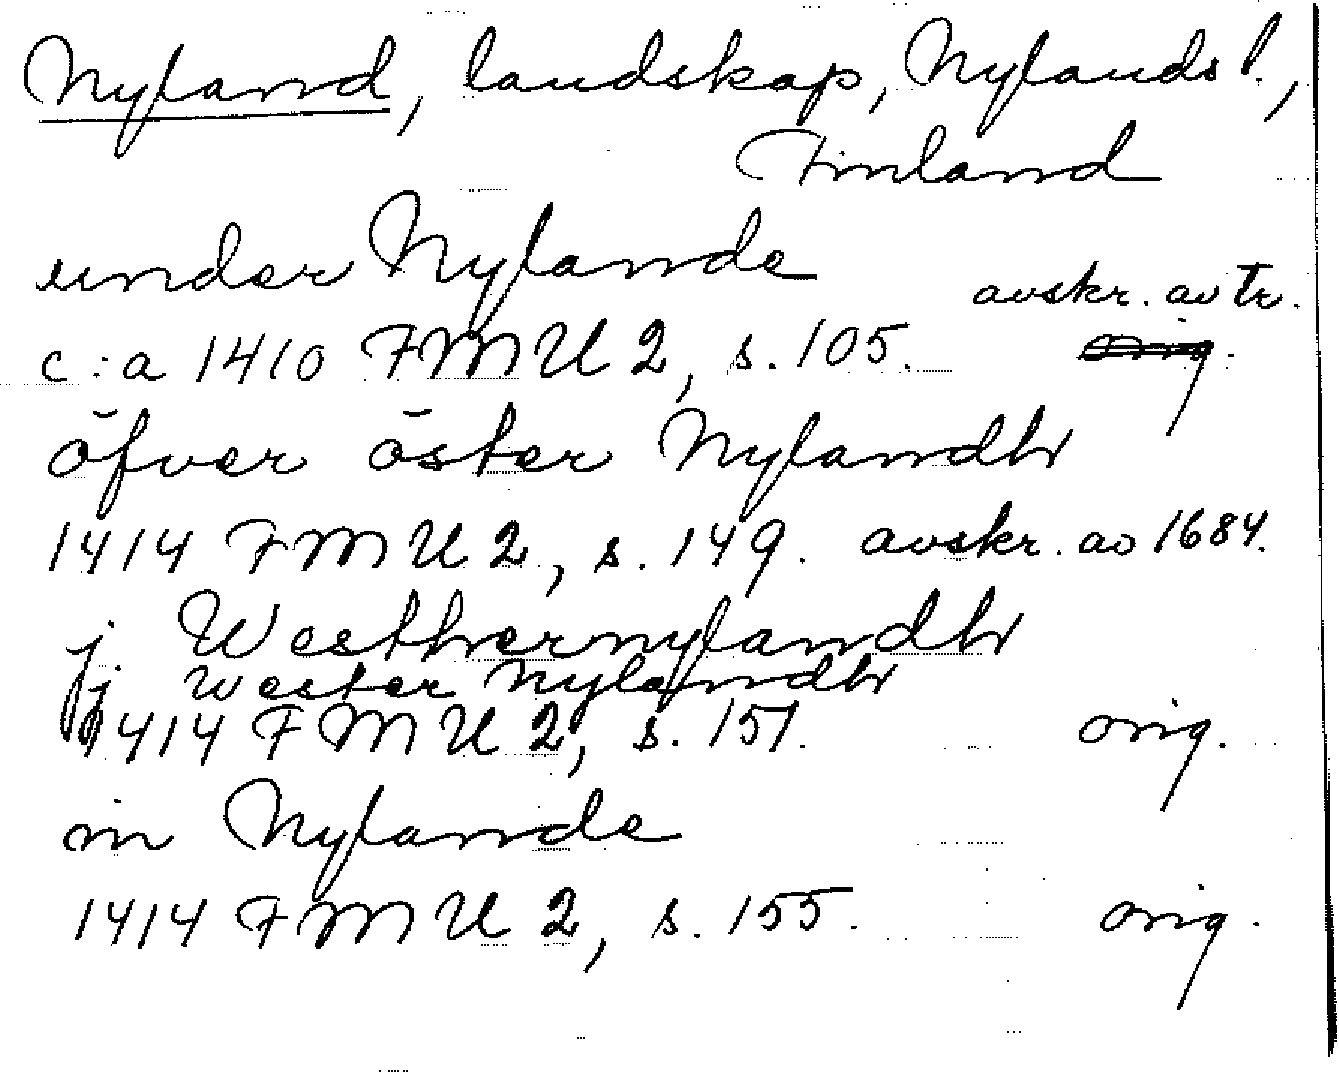 Nyland, landskap, Nylands l.,
Finland
under Nylande
avskr. av tr.
c:a 1410 FMU 2, s. 105. orig.
öfver öster Nylandh
1414 FMU 2, s. 149. avskr. av 1684.
j Westhernylandh
j. wester nylandh
1414 FMU 2, s. 151. orig.
in Nylande
1414 FMU 2, s. 155. orig.